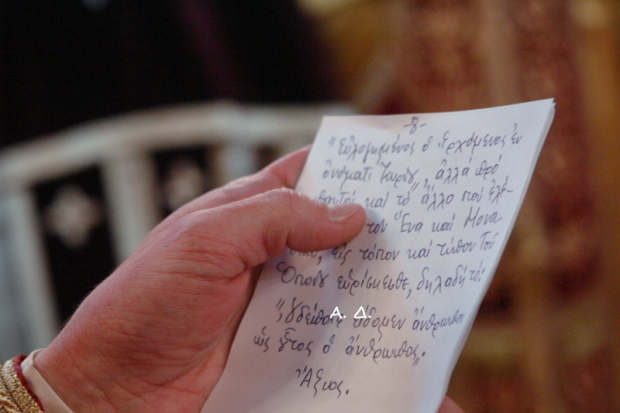 -8-
"Εὐλογημένος ὁ Ἐρχόμενος ἐν
ὀνόματι Κυρίου", ἀλλά πρό
καί τό "ἄλλο πού ἐλέ-
τόν Ἕνα καί Μονα-
εἰς τόπον καί τύπον Τοῦ
Ὁποίου εὑρίσκεσθε, δηλαδή τό:
"Οὐδέποτε εἴδομεν ἄνθρωπον
ὡς οὗτος ὁ ἄνθρωπος".
Ἄξιος.
Α. Δ.